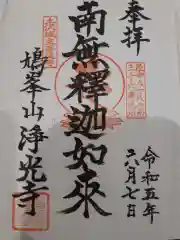 奉拝
令和五年
六月七日
南無釋迦如来
鳩峯山浄光寺